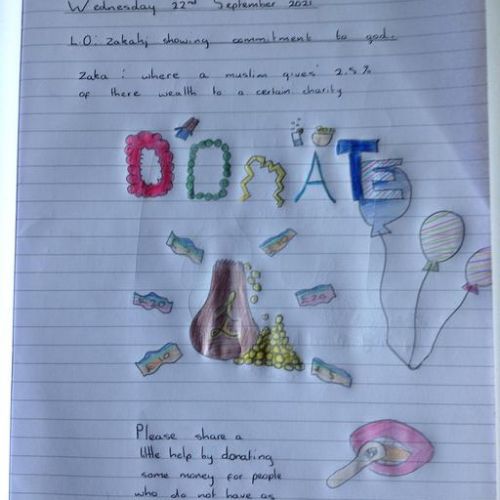 Wednesday 22nd September 2021
L.O: Zakah; showing commitment to god.
Zaka : where a muslim gives 2.5%
of there wealth to a certain charity
DONATE
£20
£20
£10
£5
Please share a
little help by donating
some money for people
who do not have as